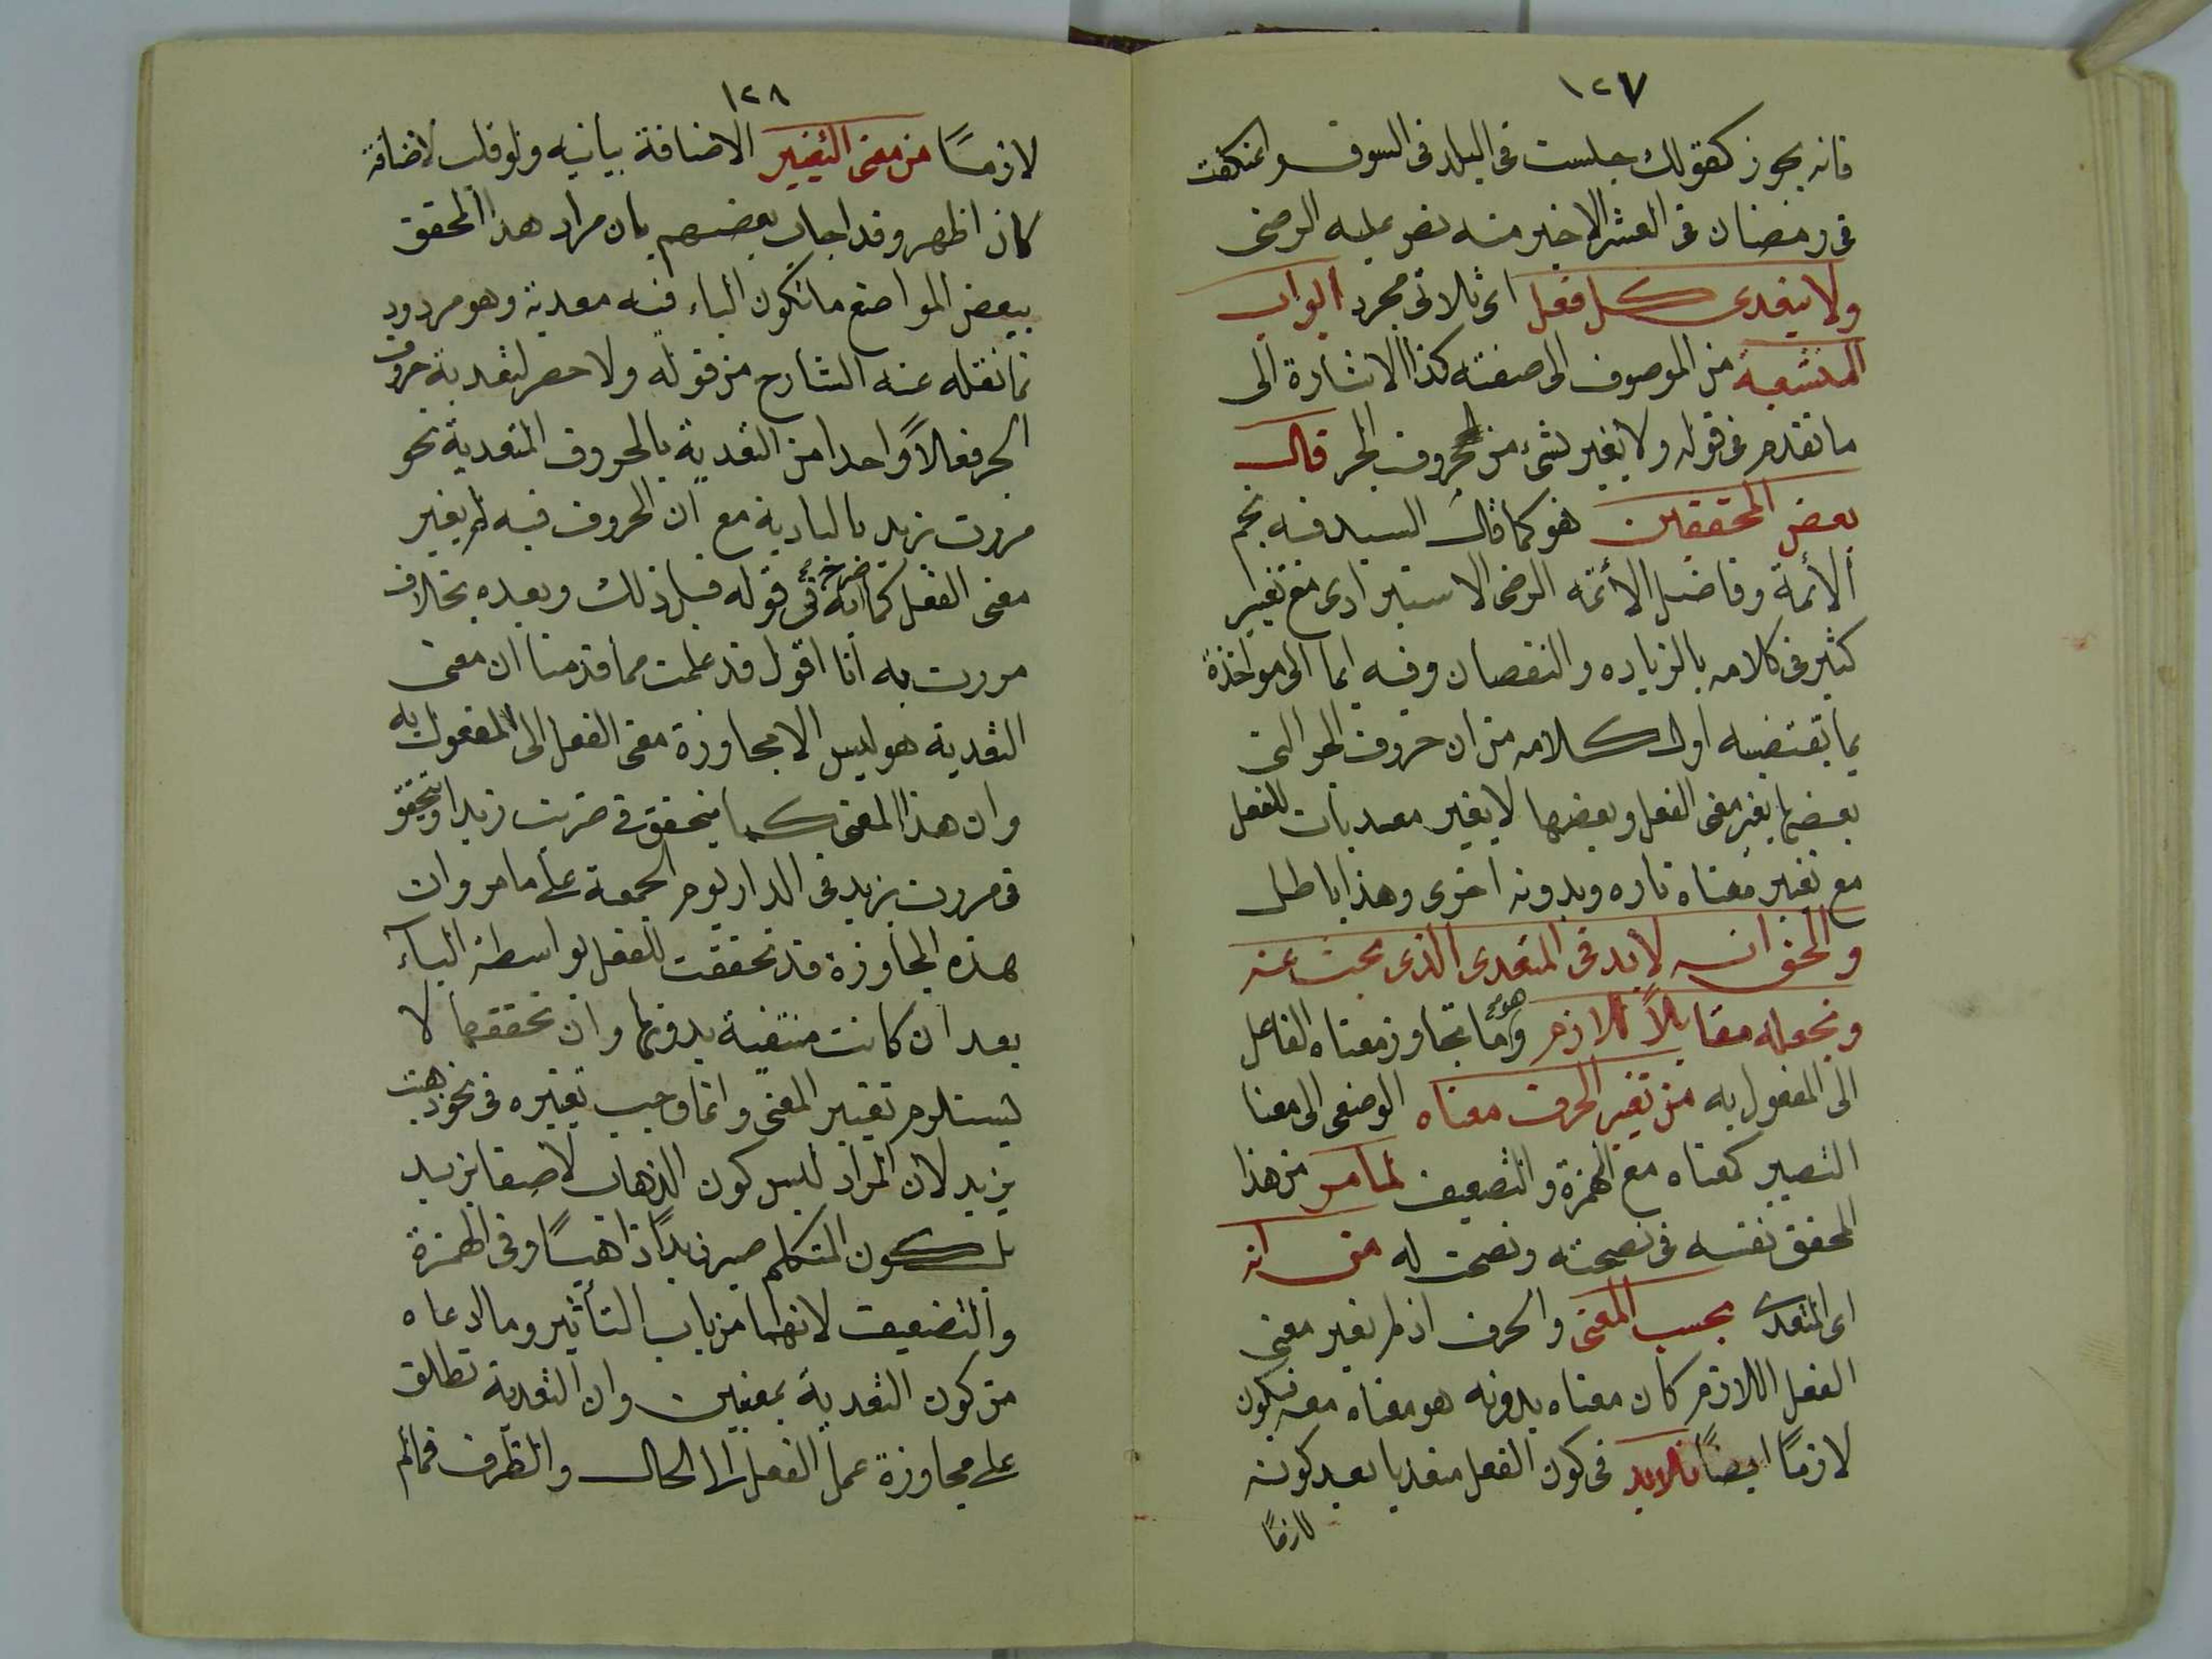 ١٢٧
فانه يجوز كقولك جلست فى البلد فى السوق واعتكفت
فى رمضان فى العشر الاخير منه نص عليه الرضى
ولا يتعدى كل فعل اى ثلاثى مجرد ابواب
المنشعبة من الموصوف الى صفته كذا الاشارة الى
ما تقدم فى قوله ولا يغير لشىء من الحروف الجر قال
بعض المحققين هو كما قال السيد فيه نجم
الأئمة وفاضل الأئمه الرضى الاسترادى مع تغيير
كثير فى كلامه بالزياده والنقصان وفيه ايما الى مواخذة
بما تقتضيه اول كلامه من ان حروف الجر التى
بعضها يغير معنى الفعل وبعضها لا يغير معديات للفعل
مع تغيير معناه تاره وبدونه اخرى وهذا باطل
والحق انه لابد فى المتعدى الذى يبحث عنه
ونجعله مقابلاً للازم وهو ما تجاوز معناه الفاعل
الى المفعول به من تغيير الحرف معناه الوضعى الى معنا
التصيير كمعناه مع الهمزة والتضعيف لما مر من هذا
المحقق نفسه فى نصحته ونصحت له من انه
اى المتعدى بحسب المعنى والحرف اذ لم يغير معنى
الفعل اللازم كان معناه بدونه هو معناه معه فيكون
لازمًا ايضًا فلابد فى كون الفعل متعديا بعد كونه
لازمًا
١٢٨
لازمـًا من معنى التغيير الاضافة بيانيه ولو قلت لاضافة
كان اظهر وقد اجاب بعضهم بان مراد هذا المحقق
ببعض المواضع ما تكون الباء فيه معدية وهو مردود
بما نقله عنه الشارح من قوله ولا حصر لتعدية حروف
الجر فعالاً واحدا من التعدية بالحروف المتعدية نحو
مررت بزيد بالبادية مع ان الحروف فيه لم يغير
معنى الفعل كما انه صرح فى قوله قبل ذلك وبعده بخلاف
مررت به انا اقول قد علمت مما قدمنا ان معنى
التعدية هو ليس الا مجاوزة معنى الفعل الى المفعول به
وان هذا المعنى كما يتحقق فى ضربت زيدا ويتحقق
فى مررت بزيد فى الدار يوم الجمعة على ما مر وان
هذه المجاوزة قد تحققت للفعل بواسطة الباء
بعد ان كانت منتفية بدونها وان تحققها لا
يستلزم تغيير المعنى وانما وجب تغييره فى نحو ذهبت
بزيد لان المراد ليس كون الذهاب لاصقا بزيد
بل كون المتكلم صير زيدًا ذاهبـًا وفى الهمزة
والتضعيف لانهما من باب التأثير وما ادعاه
من كون التعدية بمعنيين وان التعدية تطلق
على مجاوزة عمل الفعل الا الحال والظرف فمالم